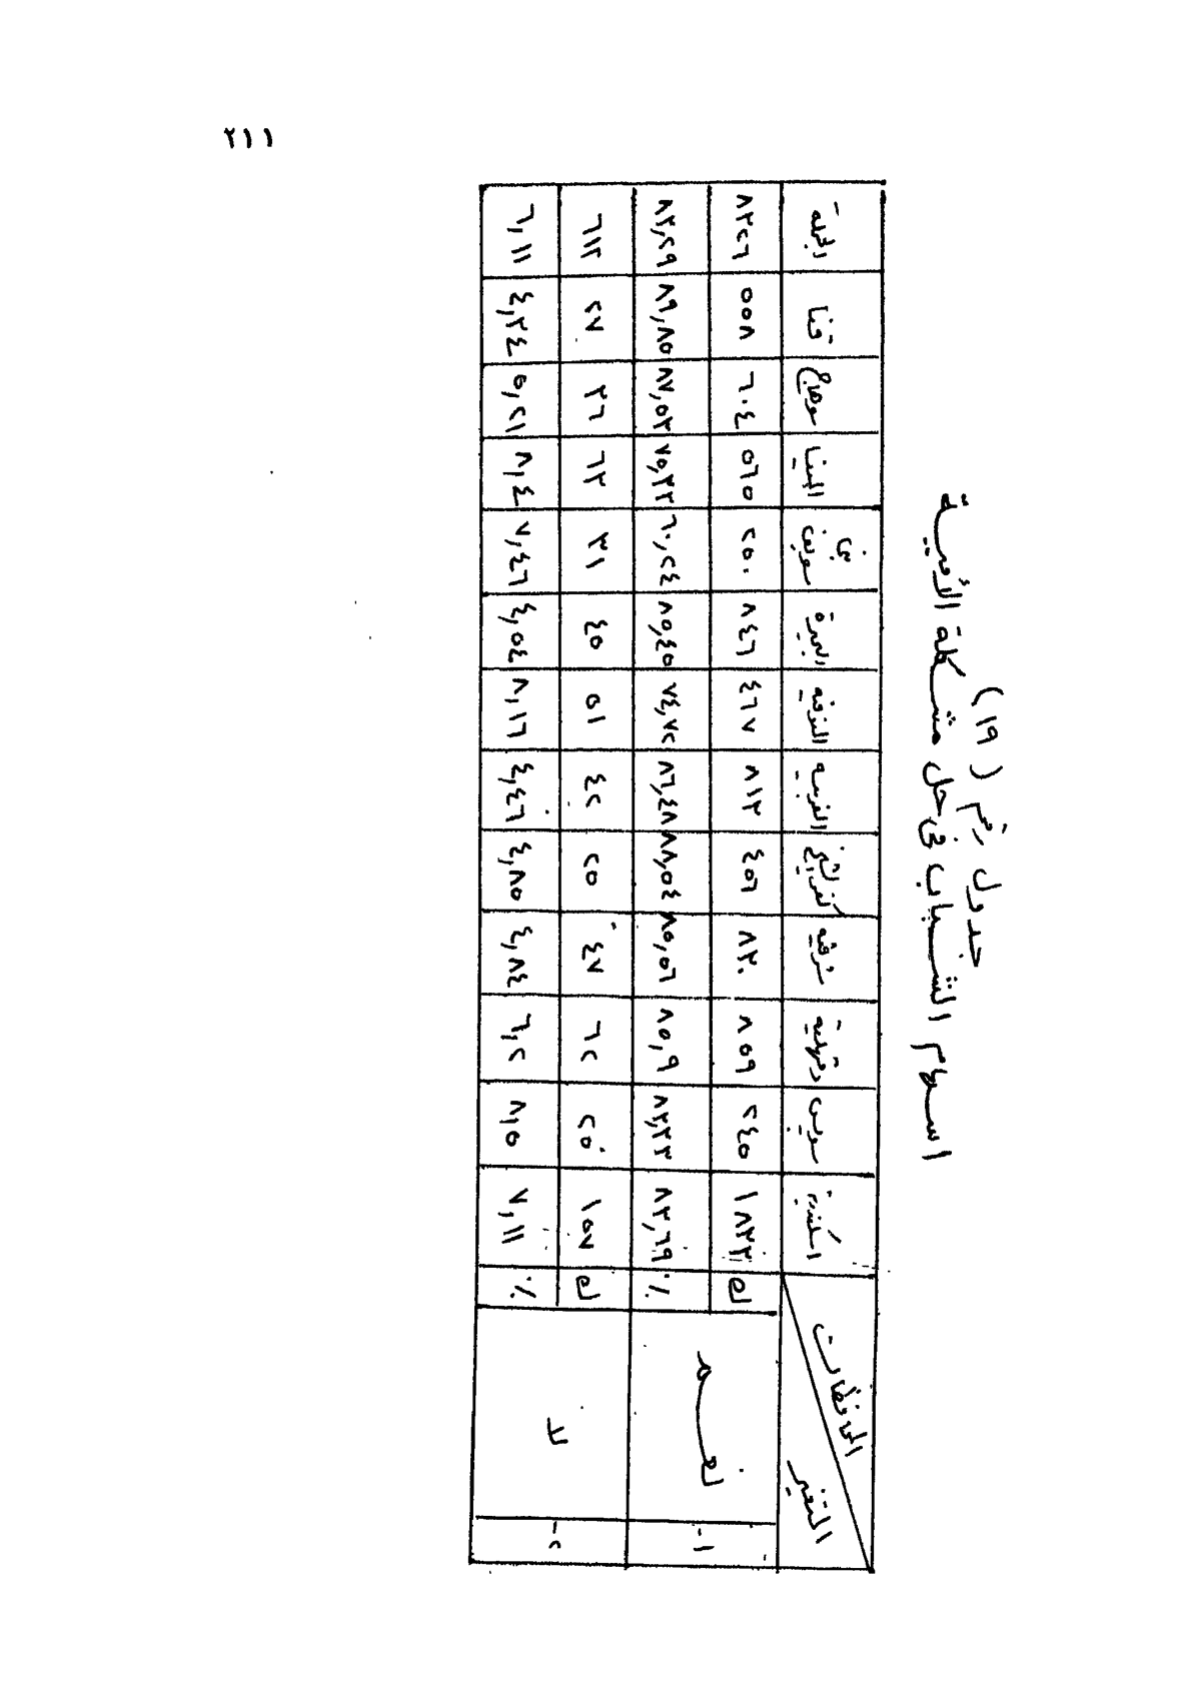 ٢١١
جدول رقم (١٩)
اسهام الشباب في حل مشكلة الأمية
المحافظات المتغير اسكندرية سويس دقهلية شرقيه كفر الشيخ الغربيه المنوفيه الجيزة بني سويف المنيا سوهاج قنا الجملة
١- نعم ك ١٨٣٣ ٢٤٥ ٨٥٩ ٨٣٠ ٤٥٦ ٨١٣ ٤٦٧ ٨٤٦ ٢٥٠ ٥٦٥ ٦٠٤ ٥٥٨ ٨٣٢٦
٪ ٨٣,٦٩ ٨٣,٣٣ ٨٥,٩ ٨٥,٥٦ ٨٨,٥٤ ٨٦,٤٨ ٧٤,٧٢ ٨٥,٤٥ ٦٠,٢٤ ٧٥,٣٣ ٨٧,٥٣ ٨٩,٨٥ ٨٣,٢٩
٢- لا ك ١٥٧ ٢٥ ٦٢ ٤٧ ٢٥ ٤٢ ٥١ ٤٥ ٣١ ٦٣ ٣٦ ٢٧ ٦١٣
٪ ٧,١١ ٨,٥ ٦,٢ ٤,٨٤ ٤,٨٥ ٤,٤٦ ٨,١٦ ٤,٥٤ ٧,٤٦ ٨,٤ ٥,٢١ ٤,٣٤ ٦,١١